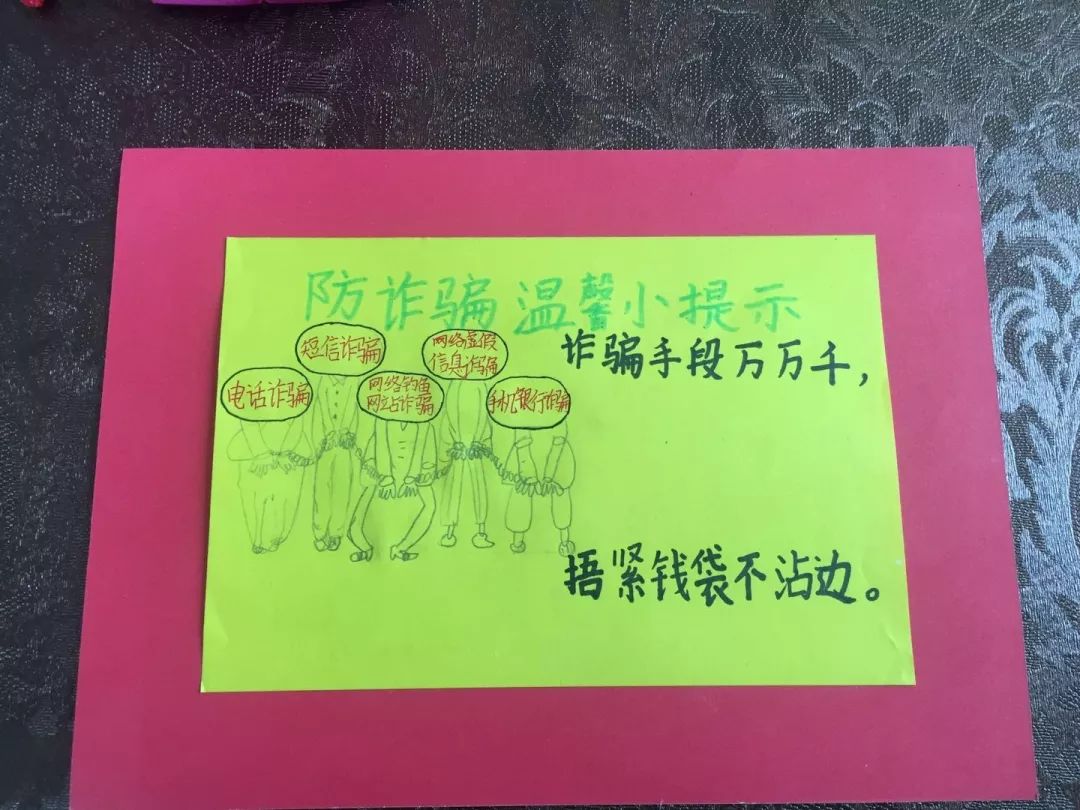 防诈骗温馨小提示
诈骗手段万万千，
短信诈骗
网络虚假
信息诈骗
电话诈骗
网络钓鱼
网站诈骗
手机银行诈骗
捂紧钱袋不沾边。